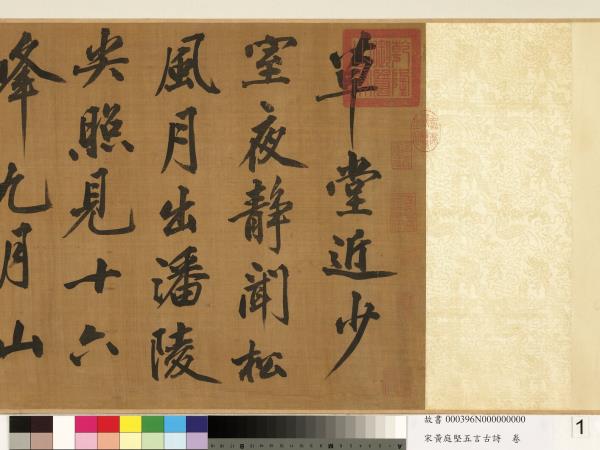 草堂近少
室夜靜聞松
風月出潘陵
尖照見十六
峰九月山
故書 000396N000000000
宋黃庭堅五言古詩 卷
1